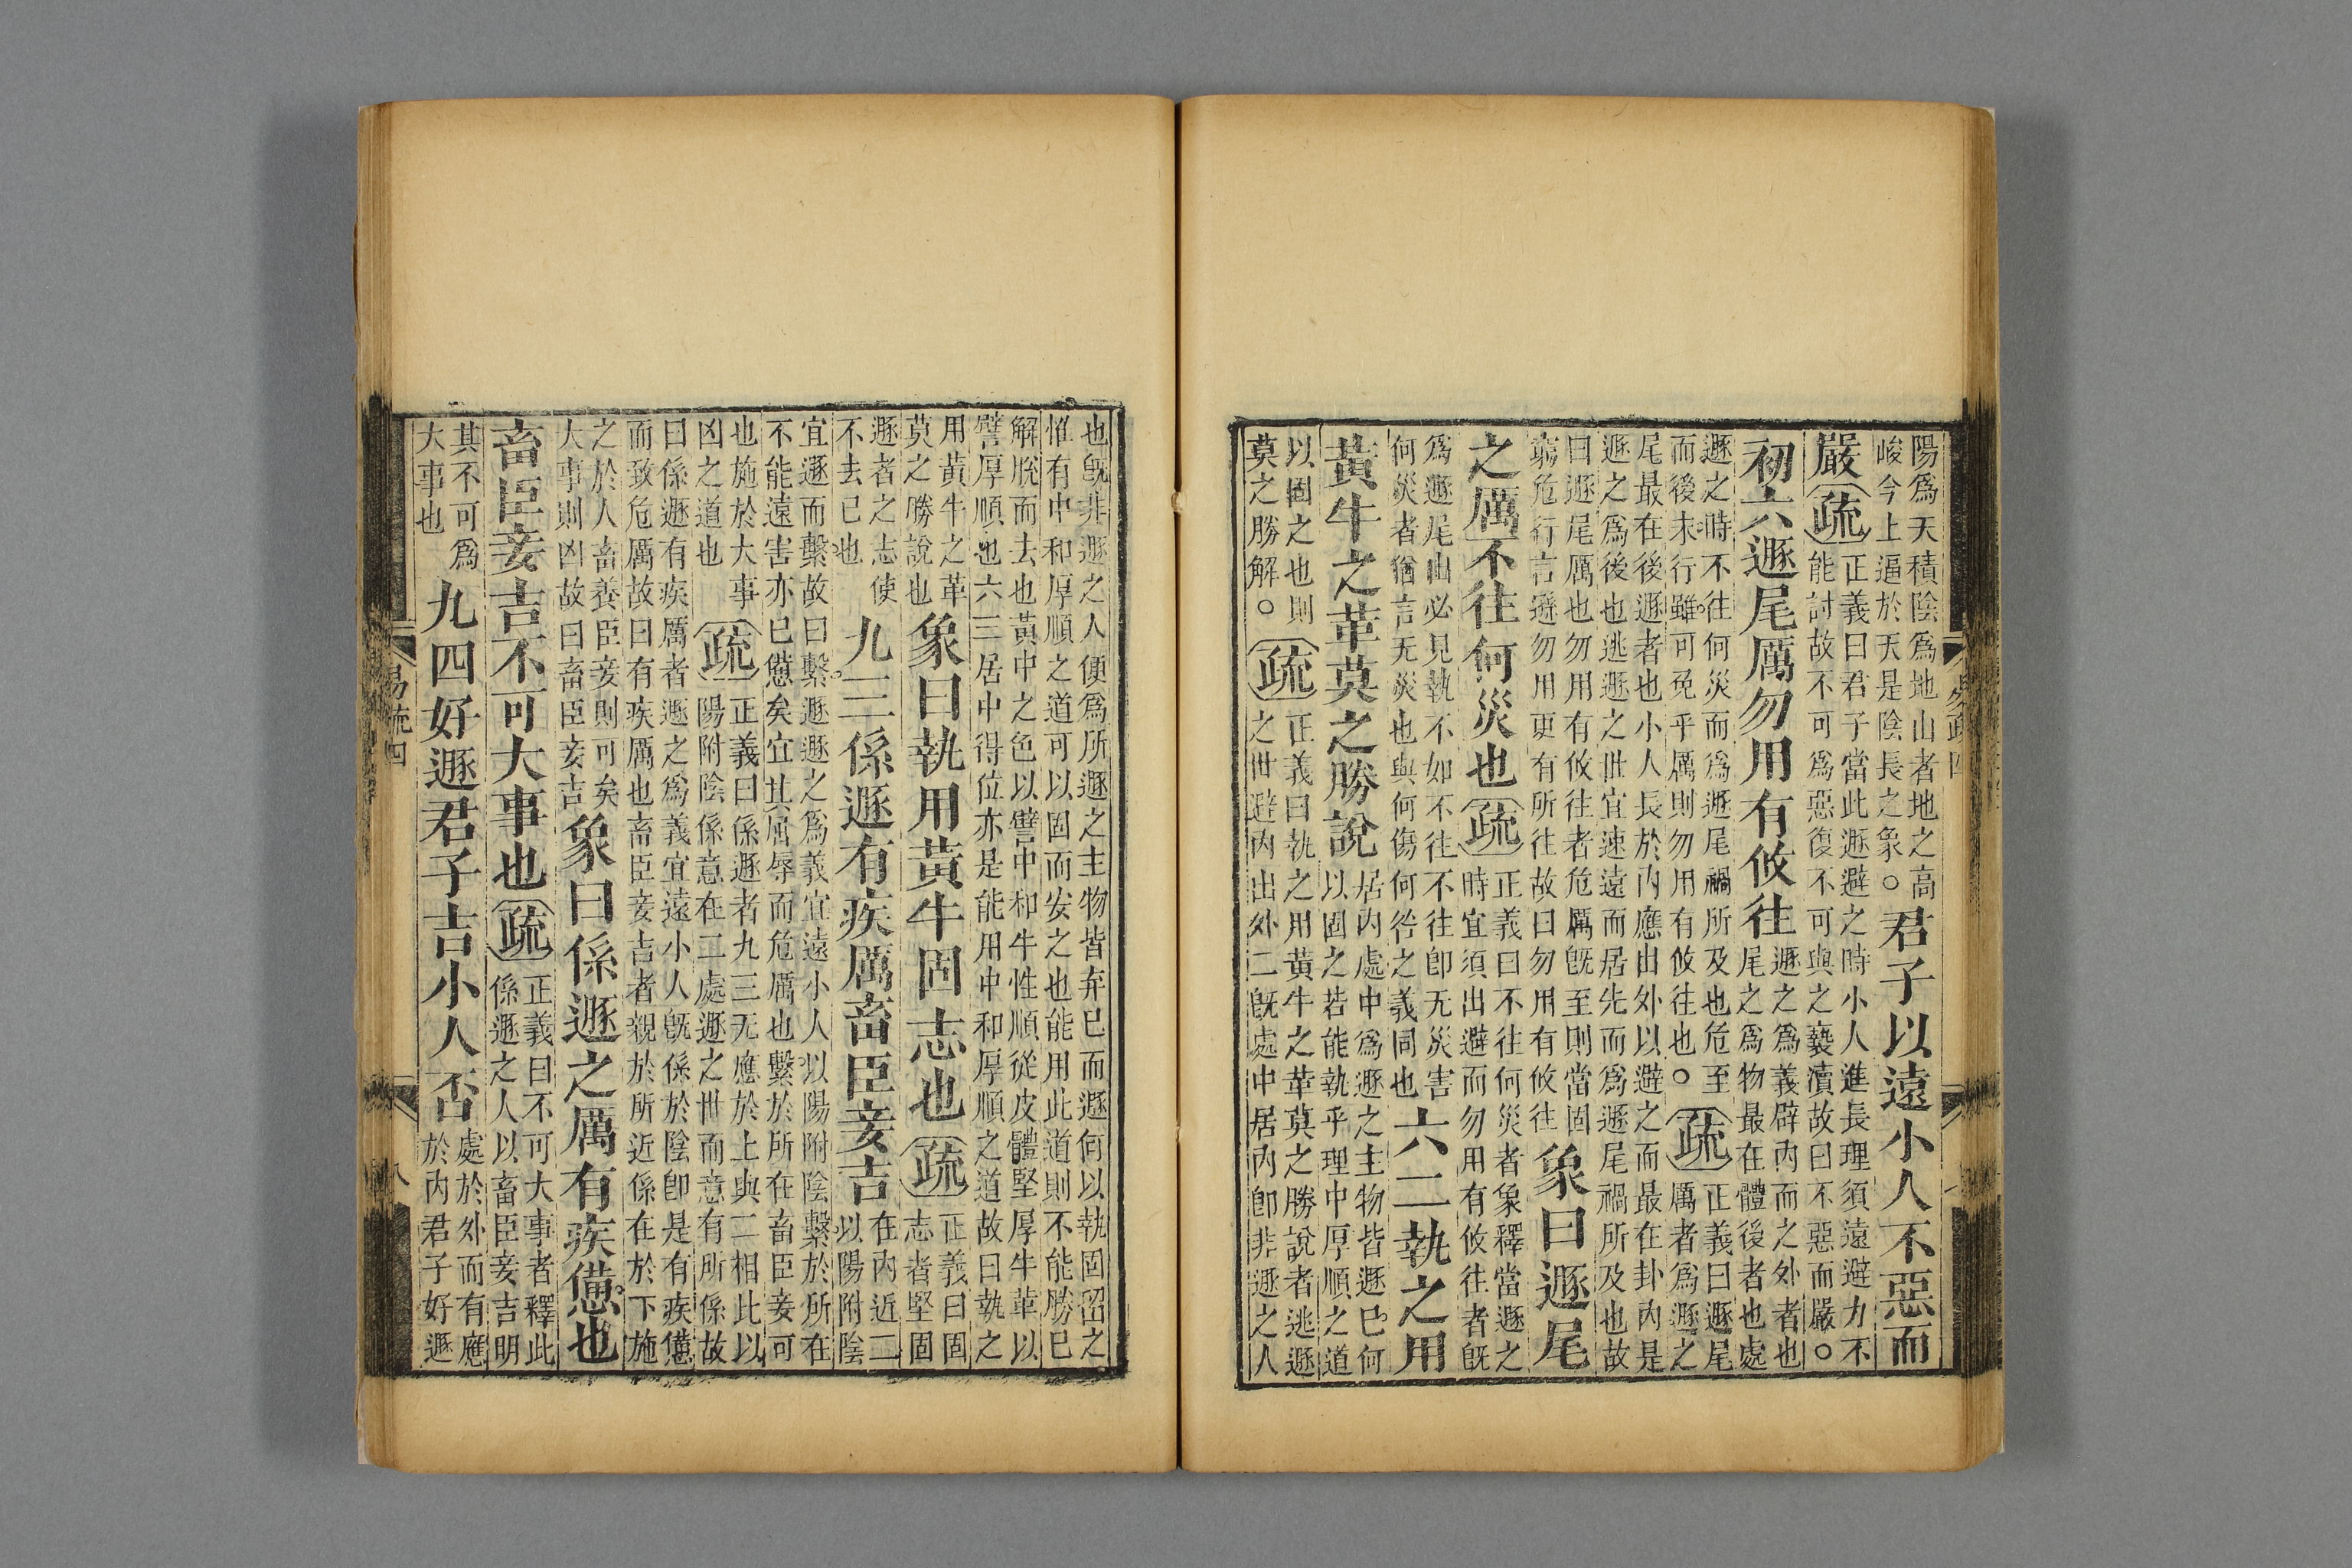 陽爲天積陰爲地山者地之高
峻今上逼於天是陰長之象○
君子以遠小人不惡而
嚴
疏
正義曰君子當此遯避之時小人進長理須遠避力不
能討故不可爲惡復不可與之褻瀆故曰不惡而嚴○
初六遯尾厲勿用有攸往
遯之爲義辟內而之外者也
尾之爲物最在體後者也處
遯之時不往何災而爲遯尾禍所及也危至
而後未行雖可免乎厲則勿用有攸往也○
疏
正義曰遯尾
厲者爲遯之
尾最在後遯者也小人長於內應出外以避之而最在卦內是
遯之爲後也逃遯之世宜速遠而居先而爲遯尾禍所及也故
曰遯尾厲也勿用有攸往者危厲旣至則當固
窮危行言遜勿用更有所往故曰勿用有攸往
象曰遯尾
之厲不往何災也
疏
正義曰不往何災者象釋當遯之
時宜須出避而勿用有攸往者旣
爲遯尾出必見執不如不往不往卽无災害
何災者猶言无災也與何傷何咎之義同也
六二執之用
黃牛之革莫之勝說
居內處中爲遯之主物皆遯已何
以固之若能執乎理中厚順之道
以固之也則
莫之勝解○
疏
正義曰執之用黃牛之革莫之勝說者逃遯
之世避內出外二旣處中居內卽非遯之人
也旣非遯之人便爲所遯之主物皆弃已而遯何以執固留之
惟有中和厚順之道可以固而安之也能用此道則不能勝已
解脫而去也黃中之色以譬中和牛性順從皮體堅厚牛革以
譬厚順也六二居中得位亦是能用中和厚順之道故曰執之
用黃牛之革
莫之勝說也
象曰執用黃牛固志也
疏
正義曰固
志者堅固
遯者之志使
不去已也
九三係遯有疾厲畜臣妾吉
在內近二
以陽附陰
宜遯而繫故曰繫遯遯之爲義宜遠小人以陽附陰繫於所在
不能遠害亦已憊矣宜其屈辱而危厲也繫於所在畜臣妾可
也施於大事
凶之道也
疏
正義曰係遯者九三无應於上與二相比以
陽附陰係意在二處遯之世而意有所係故
曰係遯有疾厲者遯之爲義宜遠小人旣係於陰卽是有疾憊
而致危厲故曰有疾厲也畜臣妾吉者親於所近係在於下施
之於人畜養臣妾則可矣
大事則凶故曰畜臣妾吉
象曰係遯之厲有疾憊也
畜臣妾吉不可大事也
疏
正義曰不可大事者釋此
係遯之人以畜臣妾吉明
其不可爲
大事也
九四好遯君子吉小人否
處於外而有應
於內君子好遯
易疏四
八